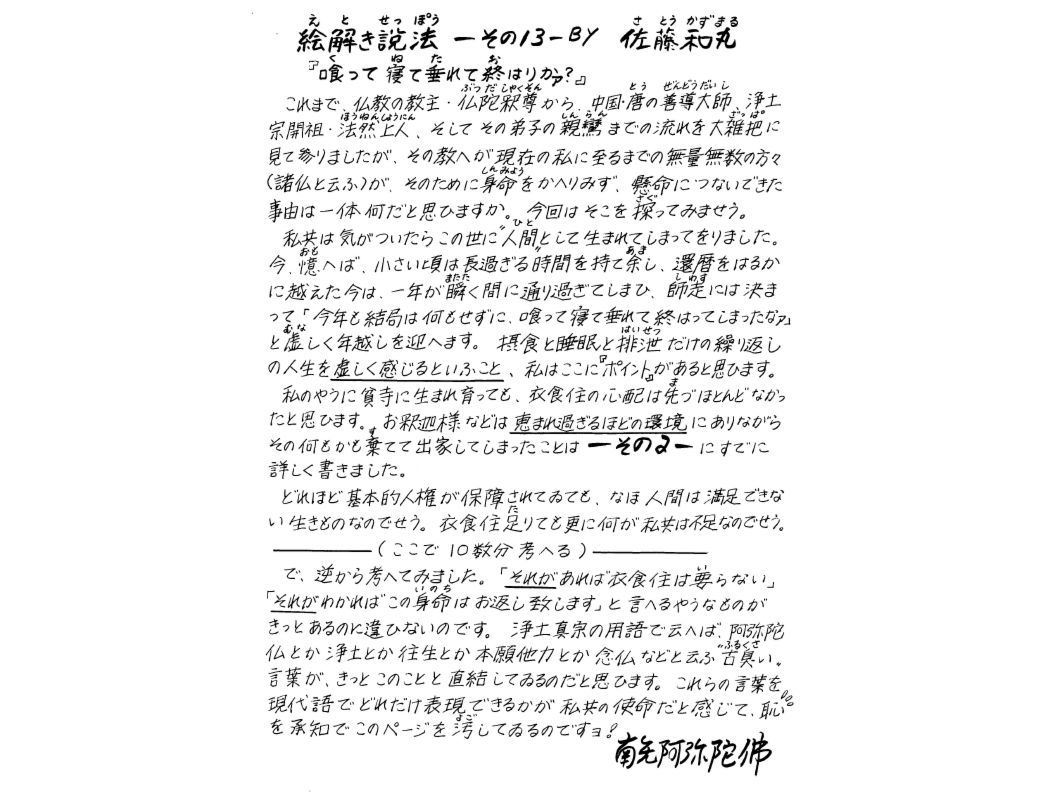 絵解き説法 ーその13ーBY 佐藤和丸
『喰って寝て垂れて終はりカァ?』
これまで、仏教の教主・仏陀釈尊から、中国・唐の善導大師、浄土
宗開祖・法然上人、そしてその弟子の親鸞までの流れを大雑把に
見て参りましたが、その教へが現在の私に至るまでの無量無数の方々
(諸仏と云ふ)が、そのために身命をかへりみず、懸命につないできた
事由は一体何だと思ひますか。今回はそこを探ってみませう。
私共は気がついたらこの世に"人間"として生まれてしまってをりました。
今、憶へば、小さい頃は長過ぎる時間を持て余し、還暦をはるか
に越えた今は、一年が瞬く間に通り過ぎてしまひ、師走には決ま
って「今年も結局は何もせずに、喰って寝て垂れて終はってしまったなァ」
と虚しく年越しを迎へます。摂食と睡眠と排泄だけの繰り返し
の人生を虚しく感じるといふこと、私はここに『ポイント』があると思ひます。
私のやうに貧寺に生まれ育っても、衣食住の心配は先づほとんどなかっ
たと思ひます。お釈迦様などは恵まれ過ぎるほどの環境にありながら
その何もかも棄てて出家してしまったことは ーその2ー にすでに
詳しく書きました。
どれほど基本的人権が保障されてゐても、なほ人間は満足できな
い生きものなのでせう。衣食住足りても更に何が私共は不足なのでせう。
――――(ここで10数分考へる)――――
で、逆から考へてみました。「それがあれば衣食住は要らない」
「それがわかればこの身命はお返し致します」と言へるやうなものが
きっとあるのに違ひないのです。浄土真宗の用語で云へば、阿弥陀
仏とか浄土とか往生とか本願他力とか念仏などと云ふ"古臭い"
言葉が、きっとこのことと直結してゐるのだと思ひます。これらの言葉を
現代語でどれだけ表現できるかが私共の使命だと感じて、恥
を承知でこのページを汚してゐるのですョ!
南无阿弥陀佛